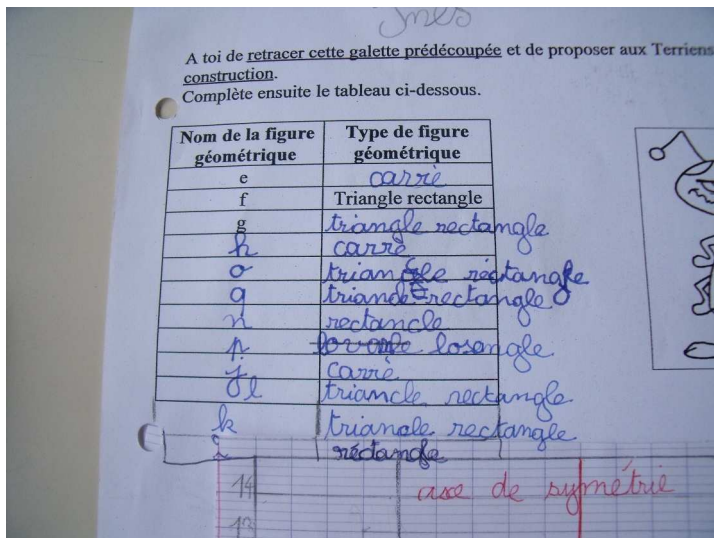 Ines
A toi de retracer cette galette prédécoupée et de proposer aux Terriens
construction.
Complète ensuite le tableau ci-dessous.
Nom de la figure géométrique Type de figure géométrique
e carrè
f Triangle rectangle
g triangle rectangle
h carrè
o triangle rectangle
q triande rectangle
n rectancle
p losangle
j carrè
l triancle rectangle
k triangle rectangle
i rectangle
14 axe de symétrie
13